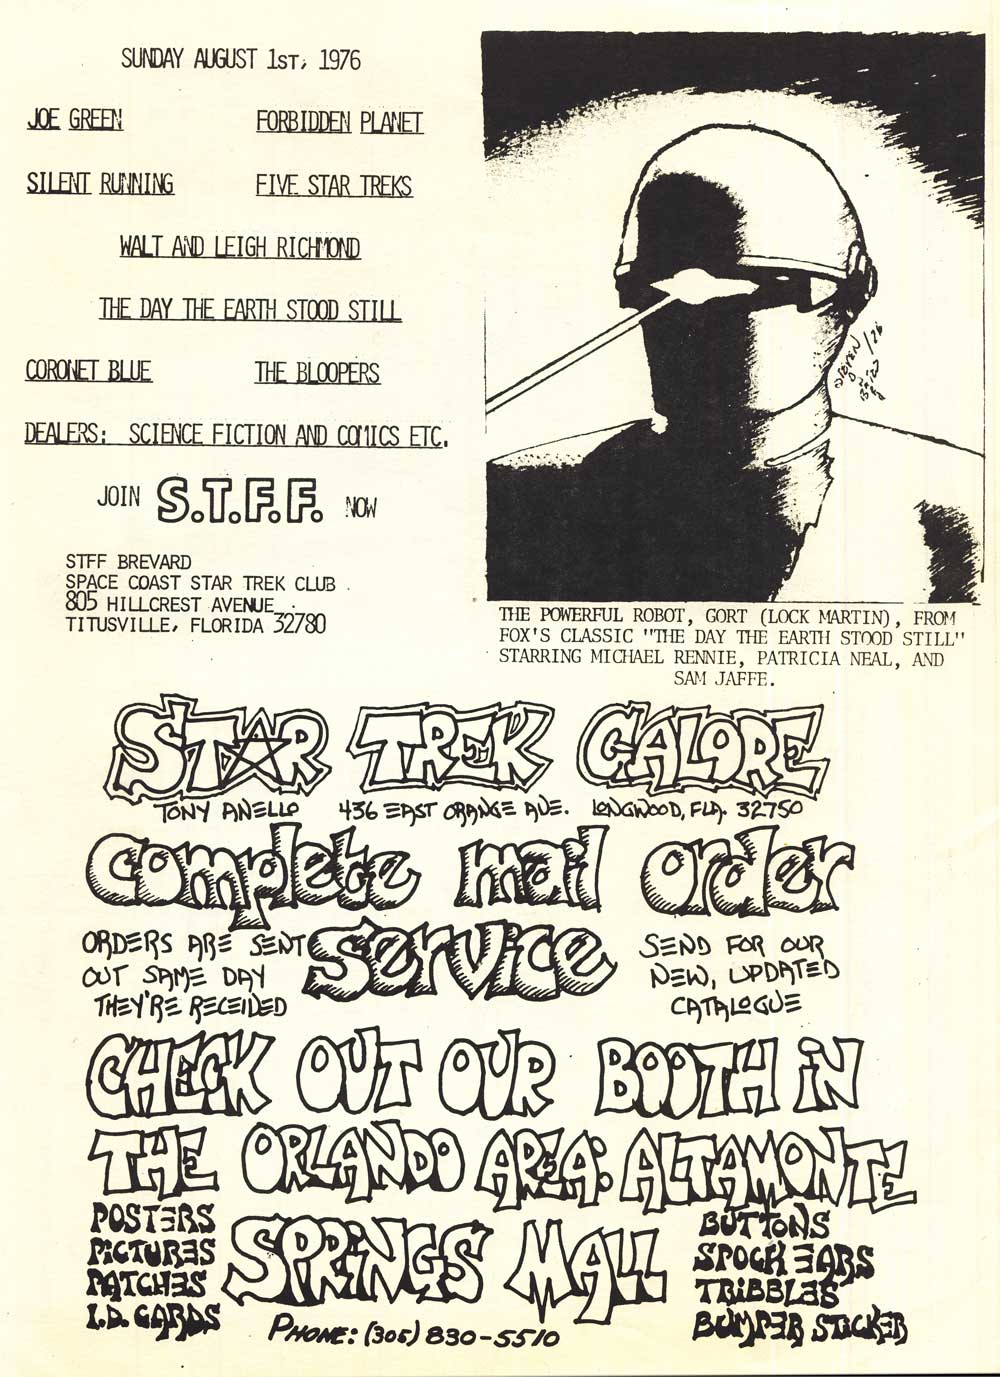 SUNDAY AUGUST 1ST, 1976
JOE GREEN FORBIDDEN PLANET
SILENT RUNNING FIVE STAR TREKS
WALT AND LEIGH RICHMOND
THE DAY THE EARTH STOOD STILL
CORONET BLUE THE BLOOPERS
DEALERS: SCIENCE FICTION AND COMICS ETC.
JOIN S.T.F.F. NOW
STFF BREVARD
SPACE COAST STAR TREK CLUB
805 HILLCREST AVENUE
TITUSVILLE, FLORIDA 32780
/76
THE POWERFUL ROBOT, GORT (LOCK MARTIN), FROM
FOX'S CLASSIC "THE DAY THE EARTH STOOD STILL"
STARRING MICHAEL RENNIE, PATRICIA NEAL, AND
SAM JAFFE.
STAR TREK GALORE
TONY ANELLO 436 EAST ORANGE AVE. LONGWOOD, FLA. 32750
complete mail order
service
ORDERS ARE SENT
OUT SAME DAY
THEY'RE RECEIVED
SEND FOR OUR
NEW, UPDATED
CATALOGUE
CHECK OUT OUR BOOTH iN
THE ORLANDO AREA: ALTAMONTE
SPRiNGS MALL
POSTERS
PiCTURES
PATCHES
I.D. CARDS
BUTTONS
SPOCK EARS
TRiBBLES
BUMPER STiCKER
PHONE: (305) 830-5510